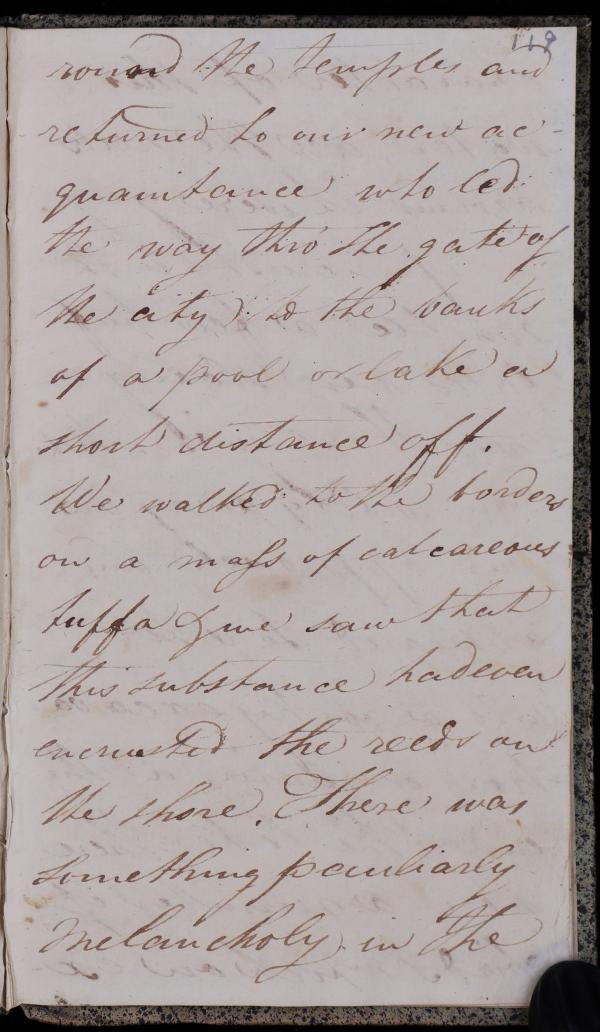 119
round the temples and
returned to our new ac-
quaintance who led
the way thro' the gate of
the city) to the banks
of a pool or lake a
short distance off.
We walked to the borders
on a mass of calcareous
tuffa & we saw that
this substance had even
encrusted the reeds on
the shore. There was
something peculiarly
melancholy in the